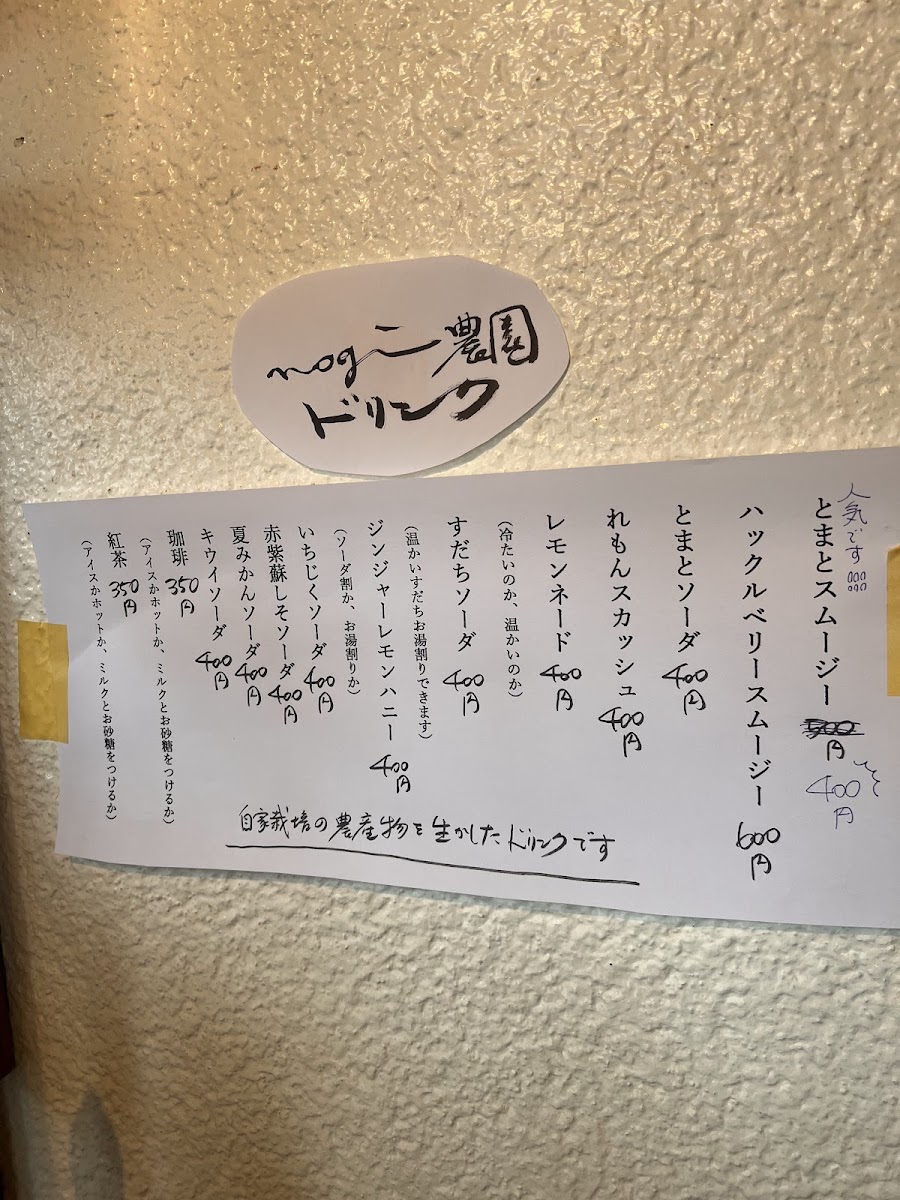 nogi農園
ドリンク
人気です!!!
とまとスムージー 円 400円
ハックルベリースムージー 600円
とまとソーダ 400円
れもんスカッシュ 400円
レモンネード 400円
(冷たいのか、温かいのか)
すだちソーダ 400円
(温かいすだちお湯割りできます)
ジンジャーレモンハニー 400円
(ソーダ割か、お湯割りか)
いちじくソーダ 400円
赤紫蘇しそソーダ 400円
夏みかんソーダ 400円
キウイソーダ 400円
珈琲 350円
(アイスかホットか、ミルクとお砂糖をつけるか)
紅茶 350円
(アイスかホットか、ミルクとお砂糖をつけるか)
自家栽培の農産物を生かしたドリンクです